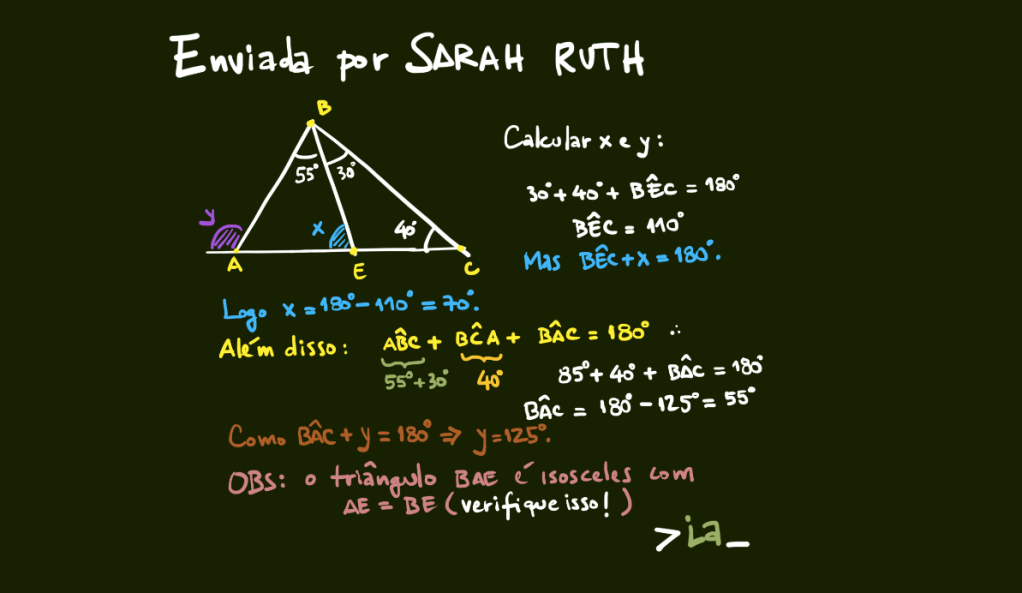 Enviada por SARAH RUTH
B
55° 30°
y x 40°
A E C
Calcular x e y:
30° + 40° + BÊC = 180°
BÊC = 110°
Mas BÊC + x = 180°.
Logo x = 180° - 110° = 70°.
Além disso: AB̂C + BĈA + BÂC = 180° ∴
55° + 30° 40°
85° + 40° + BÂC = 180°
BÂC = 180° - 125° = 55°
Como BÂC + y = 180° ⇒ y = 125°.
OBS: o triângulo BAE é isosceles com
AE = BE (verifique isso!)
>ia_